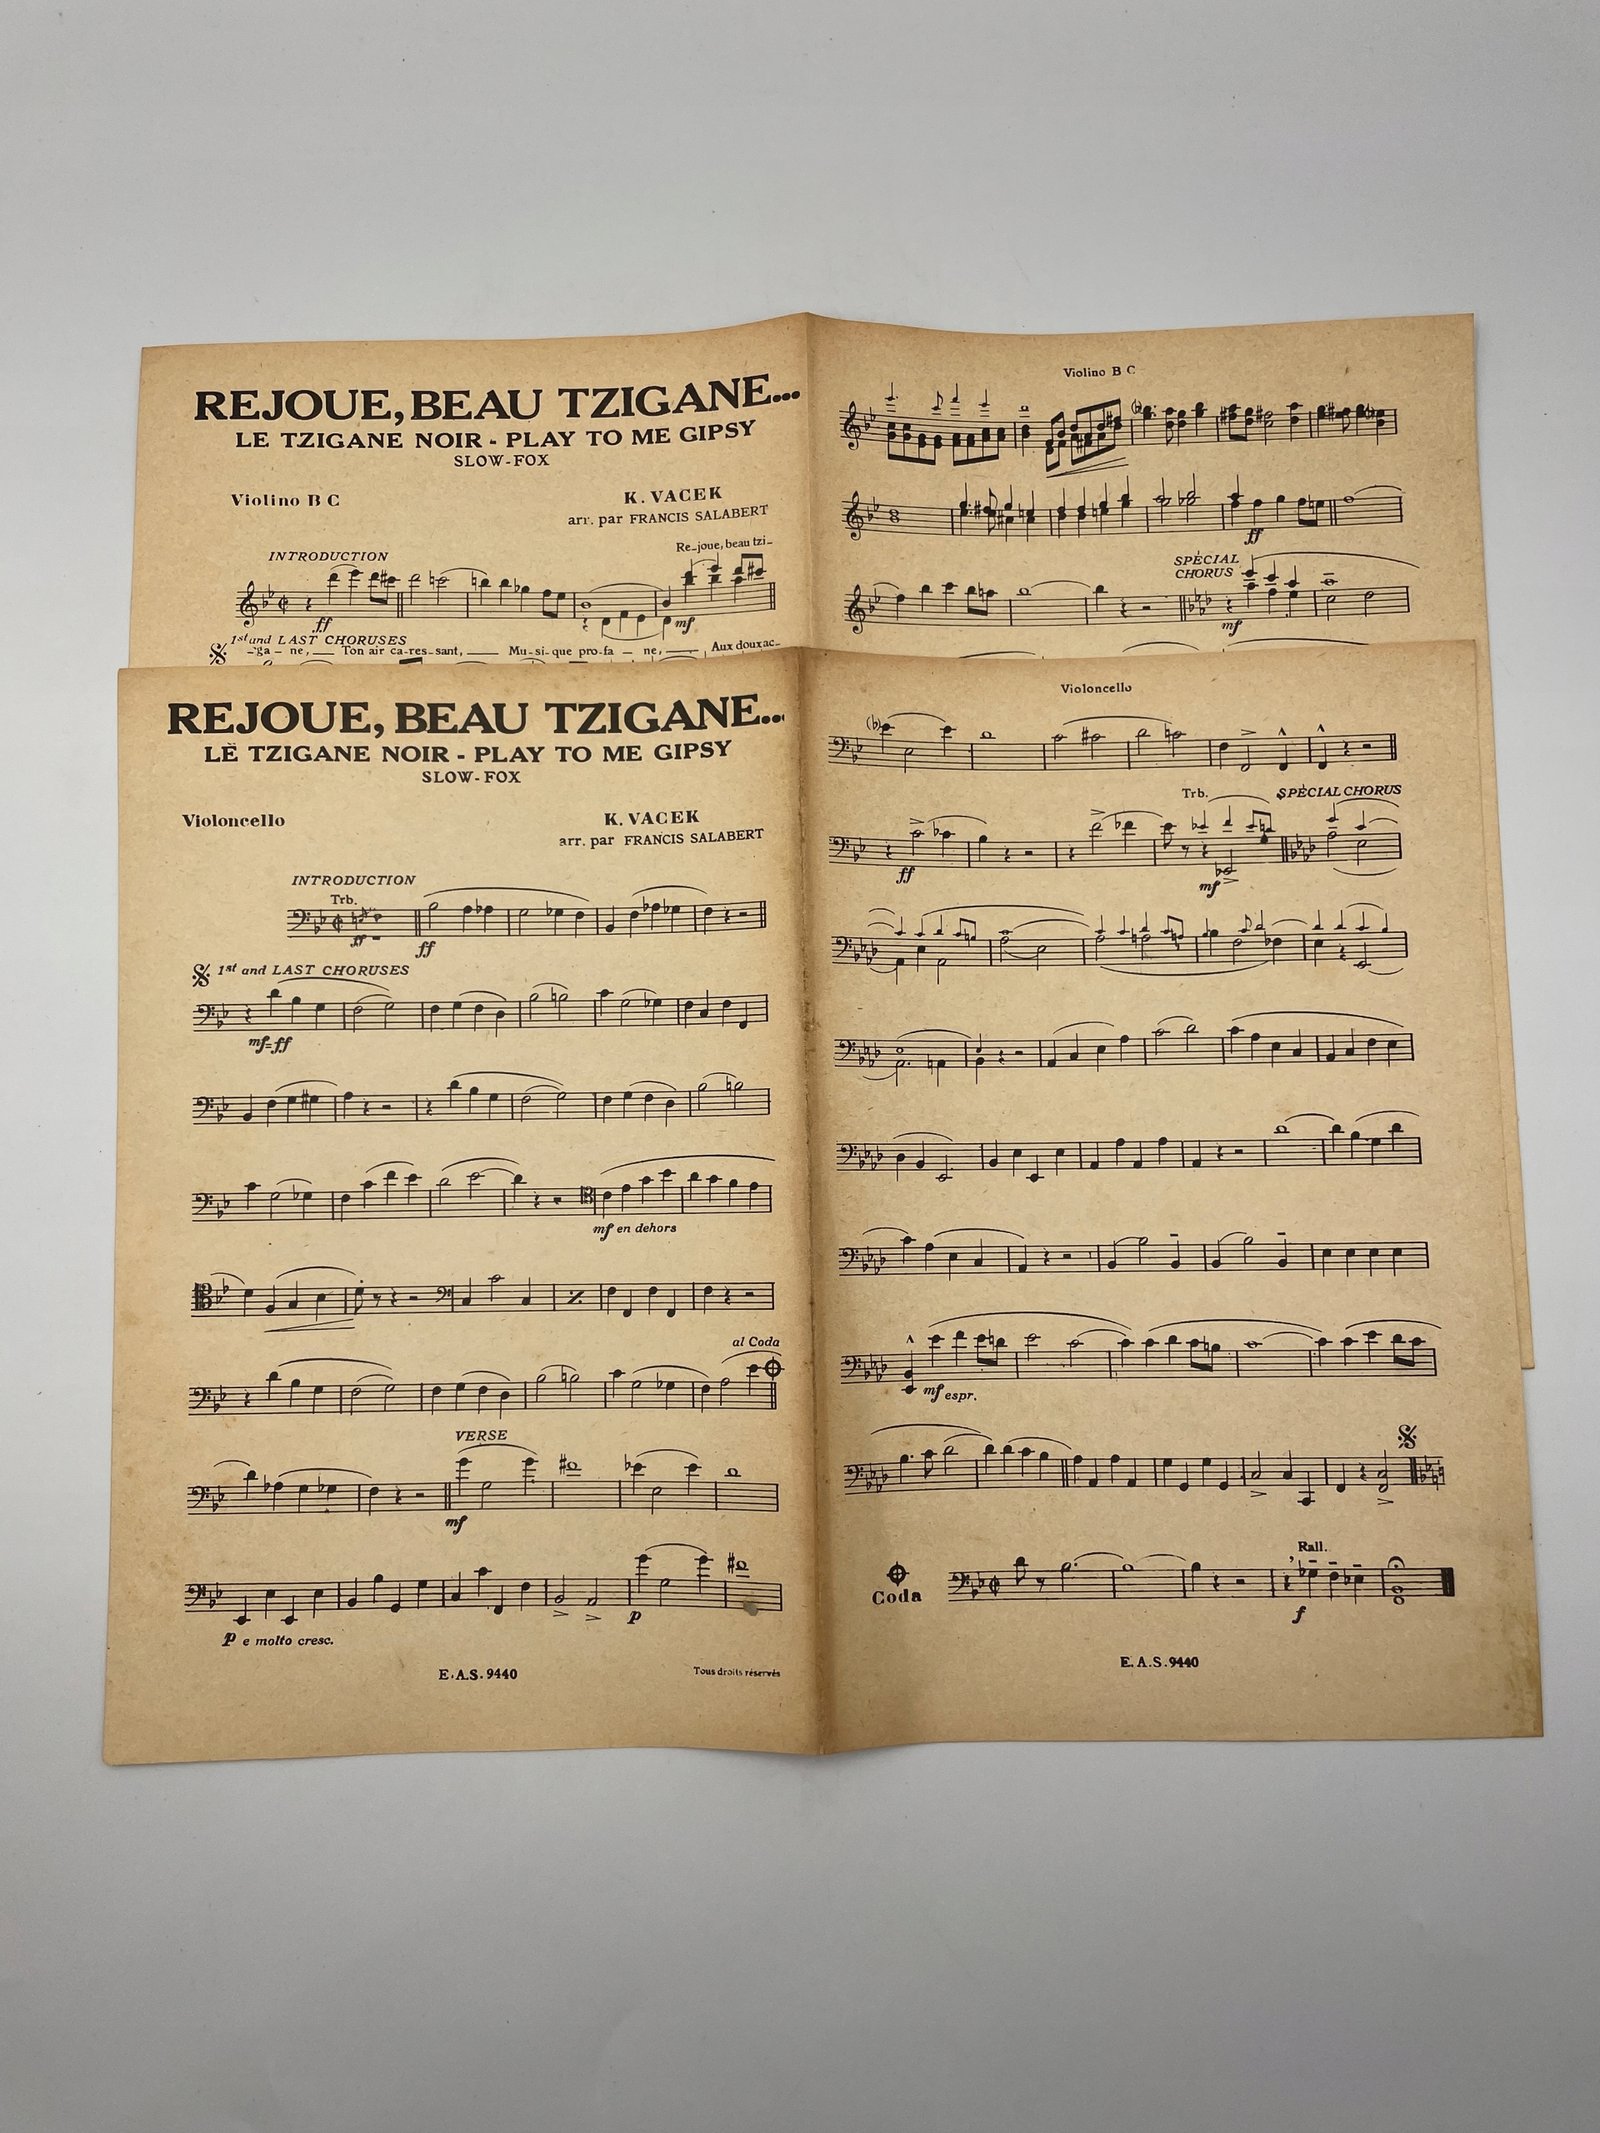 REJOUE, BEAU TZIGANE...
LE TZIGANE NOIR - PLAY TO ME GIPSY
SLOW-FOX
Violino B C
K. VACEK
arr. par FRANCIS SALABERT
INTRODUCTION
Re_joue, beau tzi_
ff
mf
1st and LAST CHORUSES
-ga - ne, ___ Ton air ca-res-sant, ___ Mu-si-que pro-fa - ne, ___ Aux doux ac-
Violino B C
ff
SPÉCIAL
CHORUS
mf
REJOUE, BEAU TZIGANE...
LE TZIGANE NOIR - PLAY TO ME GIPSY
SLOW-FOX
Violoncello
K. VACEK
arr. par FRANCIS SALABERT
INTRODUCTION
Trb.
ff
ff
1st and LAST CHORUSES
mf=ff
mf en dehors
al Coda
VERSE
mf
p e molto cresc.
p
E.A.S. 9440
Tous droits réservés
Violoncello
Trb.
SPÉCIAL CHORUS
ff
mf
mf espr.
Rall.
Coda
f
E.A.S. 9440